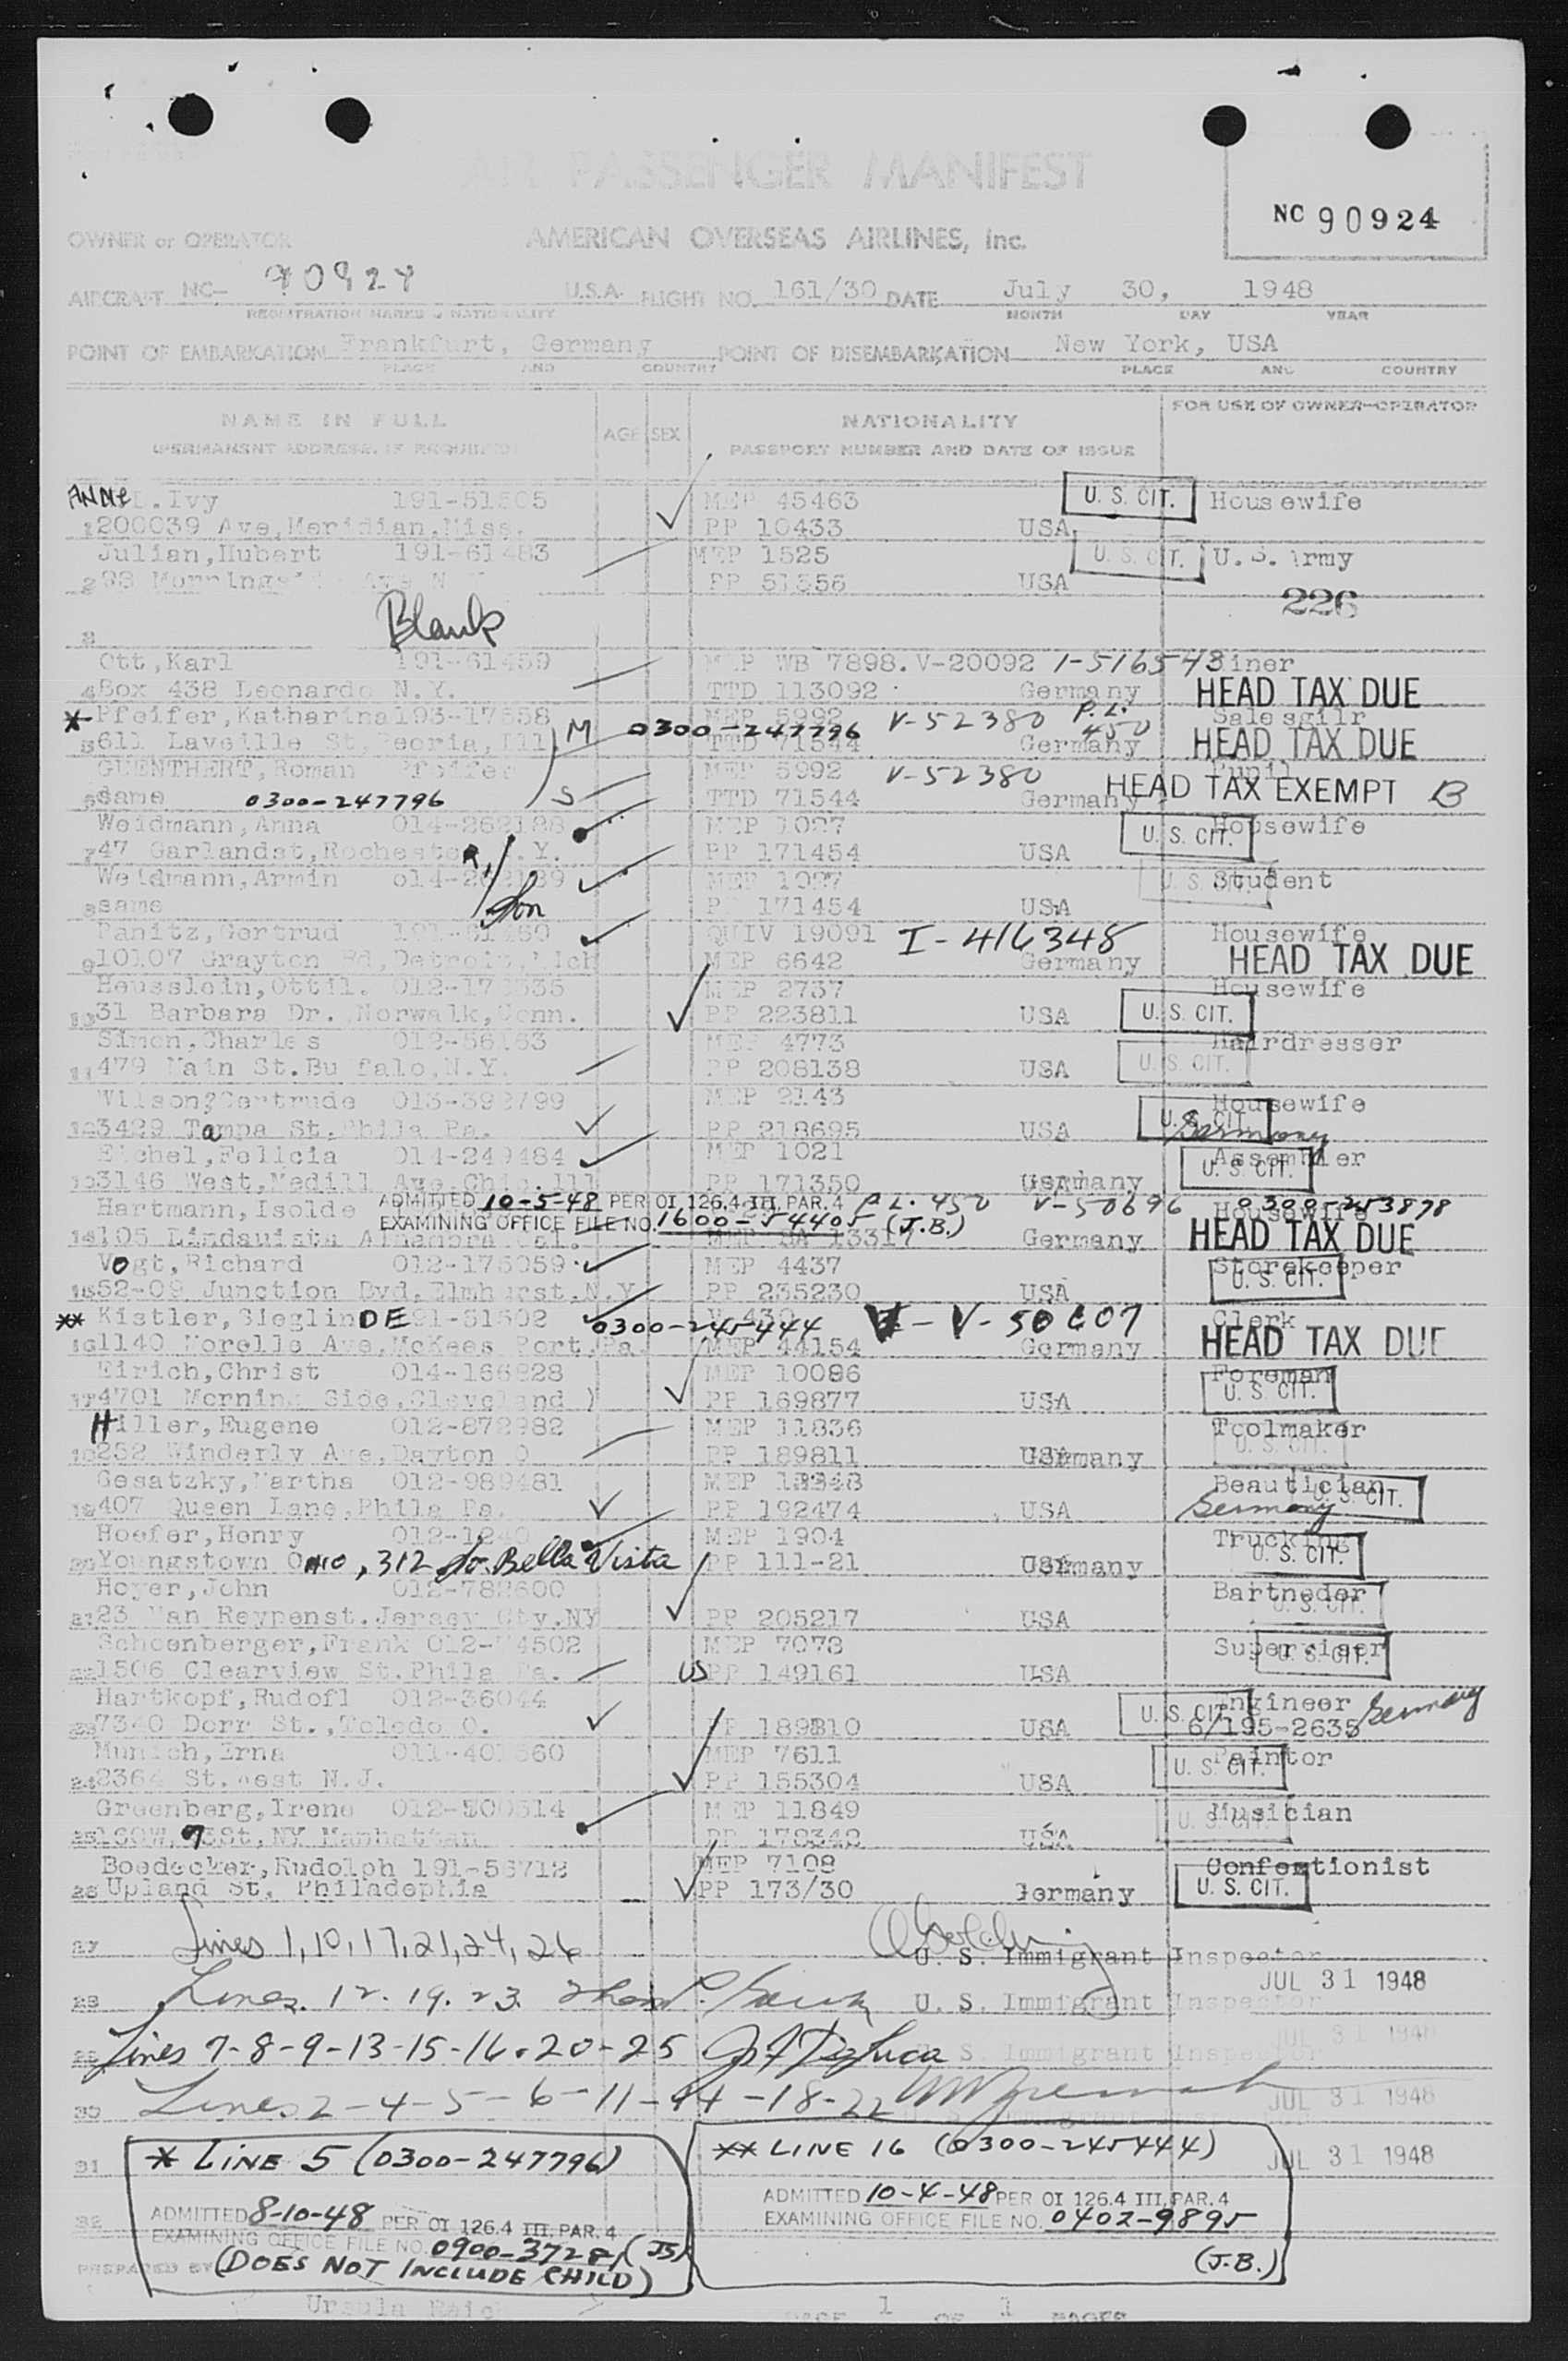 AIR PASSENGER MANIFEST
NC 90924
OWNER or OPERATOR AMERICAN OVERSEAS AIRLINES, Inc.
AIRCRAFT NC- 90924 U.S.A. FLIGHT NO. 161/30 DATE July 30, 1948
REGISTRATION MARKS & NATIONALITY MONTH DAY YEAR
POINT OF EMBARKATION Frankfurt, Germany POINT OF DISEMBARKATION New York, USA
PLACE AND COUNTRY PLACE AND COUNTRY
NAME IN FULL AGE SEX NATIONALITY FOR USE OF OWNER-OPERATOR
(PERMANENT ADDRESS, IF REQUIRED) PASSPORT NUMBER AND DATE OF ISSUE
Ivy MEP 45463 U. S. CIT. Housewife
1 200039 Ave,Meridian,Miss. PP 10433 USA
Julian,Hubert 191-61483 MEP 1525 U. S. CIT. U.S. Army
2 PP 51356 USA
226
3 Blank
Ott,Karl 191-61459 MEP WB 7898.V-20092 1-516543
4 Box 438 Leonardo N.Y. TTD 113092 Germany HEAD TAX DUE
* Pfeifer,Katharina MEP 5992 V-52380 P.L. 450 Salesgilr
5 611 Laveille St, Peoria,Ill M 0300-247796 TTD 71544 Germany HEAD TAX DUE
GUENTHERT,Roman Pfeifer MEP 5992 V-52380 Pupil
6 same 0300-247796 S TTD 71544 Germany HEAD TAX EXEMPT B
Weidmann,Anna 014-262188 MEP 1027 Housewife
7 47 Garlandst,Rochester N.Y. PP 171454 USA U. S. CIT.
Weidmann,Armin MEP 1027 U. S. CIT. Student
8 same Son PP 171454 USA
Panitz,Gertrud QUIV 19091 I-416348 Housewife
9 10107 Grayton Rd,Detroit,Mich MEP 6642 Germany HEAD TAX DUE
Heusslein,Ottil. MEP 2737 Housewife
10 31 Barbara Dr. Norwalk,Conn. PP 223811 USA U. S. CIT.
Simon,Charles 012-56163 MEP 4773 Hairdresser
11 479 Main St.Buffalo,N.Y. PP 208138 USA U. S. CIT.
Wilson,Gertrude MEP 2143 Housewife
12 3429 Tampa St,Phila Pa. PP 218695 USA U. S. CIT. Germany
Eichel,Felicia 014-249484 MEP 1021 Assembler
13 3146 West,Medill Ave,Chic.Ill PP 171350 Germany U. S. CIT.
Hartmann,Isolde ADMITTED 10-5-48 PER OI 126.4 III, PAR. 4 P.L. 450 V-50696 0300-253878 Housewife
EXAMINING OFFICE FILE NO. 1600-54405 (J.B.)
14 105 Lindauista Alhambra Cal. MEP SA 13317 Germany HEAD TAX DUE
Vogt,Richard 012-176059 MEP 4437 Storekeeper
15 52-09 Junction Bvd,Elmhurst,N.Y. PP 235230 USA U. S. CIT.
** Kistler,SieglinDE 191-51502 0300-245444 V-50607 Clerk
16 1140 Morelle Ave,McKees Port,Pa. MEP 44154 Germany HEAD TAX DUE
Eirich,Christ 014-166828 MEP 10086 Foreman
17 4701 Morning Side,Cleveland PP 169877 USA U. S. CIT.
Hiller,Eugene 012-872982 MEP 11836 Toolmaker
18 252 Winderly Ave,Dayton O PP 189811 Germany U. S. CIT.
Gesatzky,Martha 012-989481 MEP Beautician
19 407 Queen Lane,Phila Pa. PP 192474 USA Germany U. S. CIT.
Hoefer,Henry MEP 1904 Trucking
20 Youngstown OHIO, 312 So. Bella Vista PP 111-21 Germany U. S. CIT.
Hoyer,John 012-782600 Bartneder
21 23 Van Reypenst.Jersey Cty,NY PP 205217 USA U. S. CIT.
Schoenberger,Frank MEP 7078 Superviser
22 1506 Clearview St.Phila Pa. US PP 149161 USA U. S. CIT.
Hartkopf,Rudofl 012-36044 U. S. CIT. Engineer Germany
23 7340 Dorr St.,Toledo O. USA 6/195-2635
Munich,Erna MEP 7611 Paintor
24 2364 St.West N.J. PP 155304 USA U. S. CIT.
Greenberg,Irene MEP 11849 U. S. CIT. Musician
25 NY Manhattan PP 178342 USA
Boedecker,Rudolph 191-56712 MEP 7108 Confectionist
26 Upland St, Philadephia PP 173/30 Germany U. S. CIT.
27 Lines 1, 10, 17, 21, 24, 26 U. S. Immigrant Inspector
28 Lines. 12. 19. 23. U. S. Immigrant Inspector JUL 31 1948
29 Lines 7-8-9-13-15-16-20-25 U. S. Immigrant Inspector JUL 31 1948
30 Lines 2-4-5-6-11-14-18-22 JUL 31 1948
31 * LINE 5 (0300-247796) ** LINE 16 (0300-245444) JUL 31 1948
32 ADMITTED 8-10-48 PER OI 126.4 III, PAR. 4 ADMITTED 10-4-48 PER OI 126.4 III, PAR. 4
EXAMINING OFFICE FILE NO. 0900-3728 (JS) EXAMINING OFFICE FILE NO. 0402-9895
PREPARED BY (DOES NOT INCLUDE CHILD) (J.B.)
Ursula PAGE 1 OF 1 PAGES